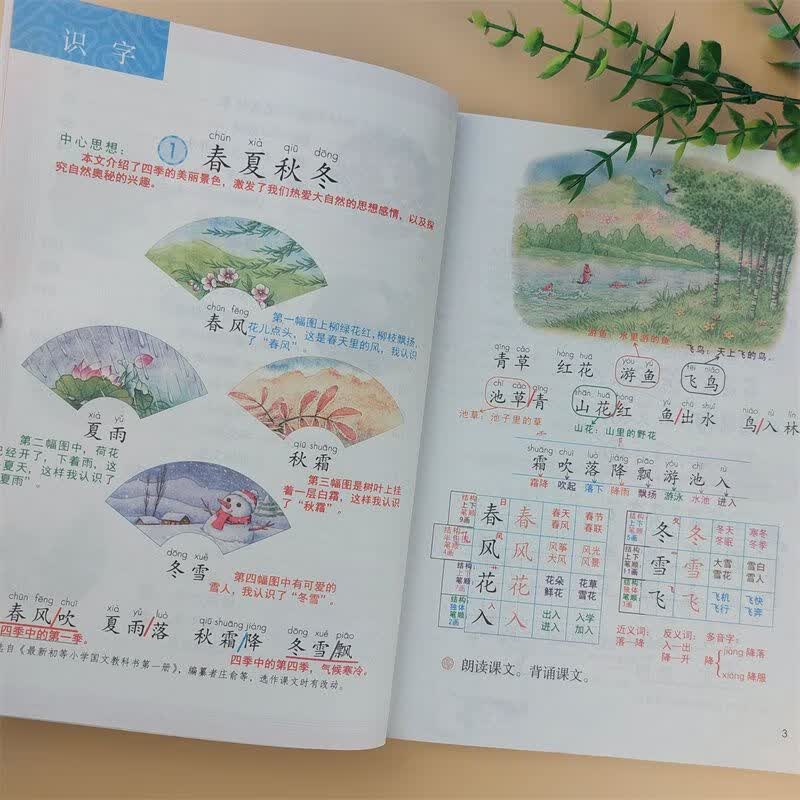 识字
中心思想：
① chūn xià qiū dōng
春夏秋冬
本文介绍了四季的美丽景色，激发了我们热爱大自然的思想感情，以及探
究自然奥秘的兴趣。
chūn fēng
春风
第一幅图上柳绿花红，柳枝飘扬，
花儿点头，这是春天里的风，我认识
了“春风”。
xià yǔ
夏雨
第二幅图中，荷花
已经开了，下着雨，这
夏天，这样我认识了
夏雨”
qiū shuāng
秋霜
第三幅图是树叶上挂
着一层白霜，这样我认识
了“秋霜”。
dōng xuě
冬雪
第四幅图中有可爱的
雪人，我认识了“冬雪”。
chūn fēng chuī xià yǔ luò qiū shuāng jiàng dōng xuě piāo
春风/吹 夏雨/落 秋霜/降 冬雪/飘
四季中的第一季。
四季中的第四季，气候寒冷。
选自《最新初等小学国文教科书第一册》，编纂者庄俞等，选作课文时有改动。
游鱼：水里游的鱼
飞鸟：天上飞的鸟。
qīng cǎo hóng huā yóu yú fēi niǎo
青草 红花 游鱼 飞鸟
chí cǎo qīng shān huā hóng yú chū shuǐ niǎo rù lín
池草/青 山花/红 鱼/出水 鸟/入林
池草：池子里的草
山花：山里的野花
霜 吹 落 降 飘 游 池 入
霜降 吹起 落下 降雨 飘扬 游泳 水池 进入
结构 上下 笔顺 9画
春 春 春天 春节
春风 春联
风 风 风筝 风光
大风 风景
花 花 花朵 花草
鲜花 花雪
结构 独体 笔顺 2画
入 入 出入 入学
进入 加入
结构 上下 笔顺 5画
冬 冬 冬天 寒冬
冬眠 冬季
雪 雪 大雪 雪白
雪花 雪人
飞 飞 飞机 飞快
飞行 飞奔
近义词： 反义词： 多音字：
落—降 入—出 jiàng 降落
降—升 降
xiáng 降服
朗读课文。背诵课文。
3